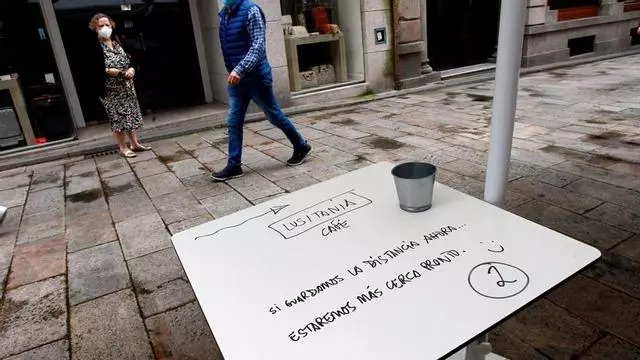 LUSITANIA
CAFÉ
SI GUARDAMOS LA DISTANCIA AHORA...
ESTAREMOS MÁS CERCA PRONTO.
2